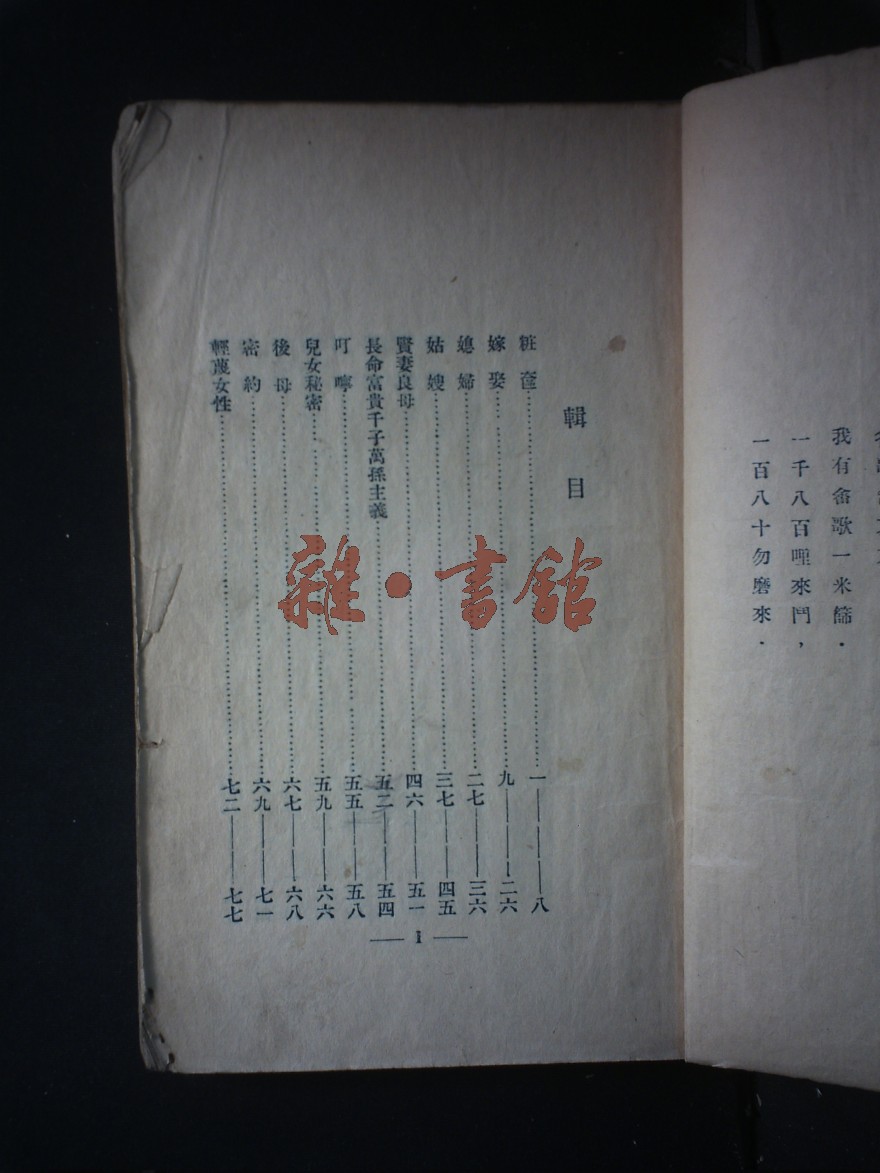 我有畲歌一米篩．
一千八百哩來鬥，
一百八十勿磨來．
輯目
粧奩……一——八
嫁娶……九——二六
媳婦……二七——三六
姑嫂……三七——四五
賢妻良母……四六——五一
長命富貴千子萬孫主義……五二——五四
叮嚀……五五——五八
兒女秘密……五九——六六
後母……六七——六八
密約……六九——七一
輕蔑女性……七二——七七
— 1 —
雜·書館